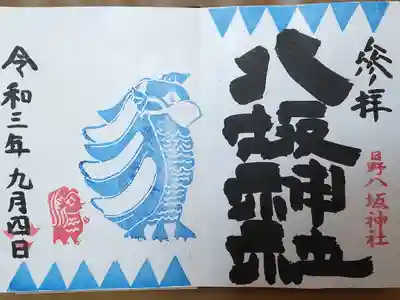 參拜
八坂神社
日野八坂神社
令和三年九月四日